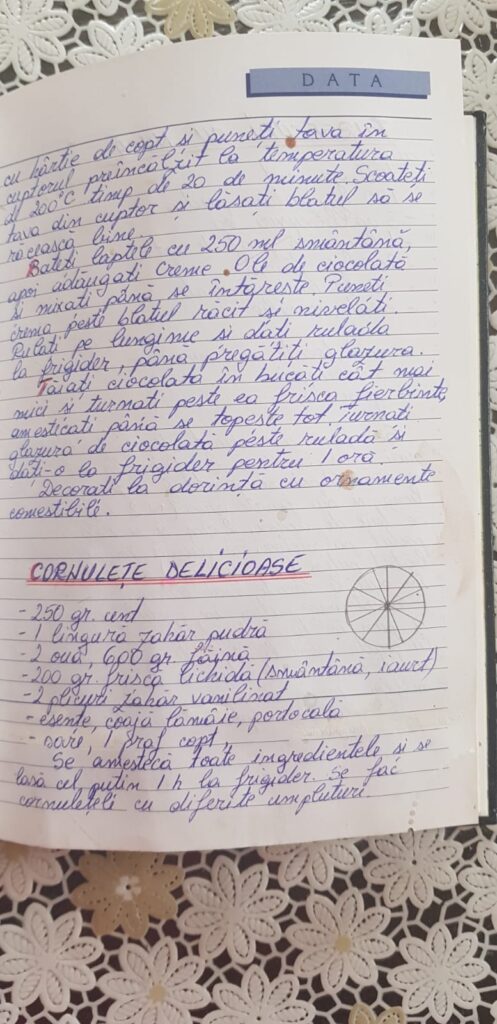 DATA
cu hârtie de copt și punești tava în
cuptorul preîncălzit la temperatura
de 200°C timp de 20 de minute. Scoateți
tava din cuptor și lăsați blatul să se
răcească bine.
Bateți laptele cu 250 ml smântână,
apoi adăugați Creme Ole de ciocolată
și mixați până se întărește. Puneți
crema peste blatul răcit și nivelați.
Rulați pe lungime și dați rulada
la frigider, până pregătiți glazura.
Tăiați ciocolata în bucăți cât mai
mici și turnați peste ea frisca fierbinte,
amestecați până se topește tot. Turnați
glazura de ciocolată peste ruladă și
dați-o la frigider pentru 1 oră.
Decorați la dorință cu ornamente
comestibile.
CORNULEȚE DELICIOASE
- 250 gr. unt
- 1 lingură zahăr pudră
- 2 ouă, 600 gr. făină
- 200 gr. frișcă lichidă (smântână, iaurt)
- 2 plicuri zahăr vanilinat
- esențe, coajă lămâie, portocală
- sare, 1 praf copt,
Se amestecă toate ingredientele și se
lasă cel puțin 1 h la frigider. Se fac
cornulețeli cu diferite umpluturi.